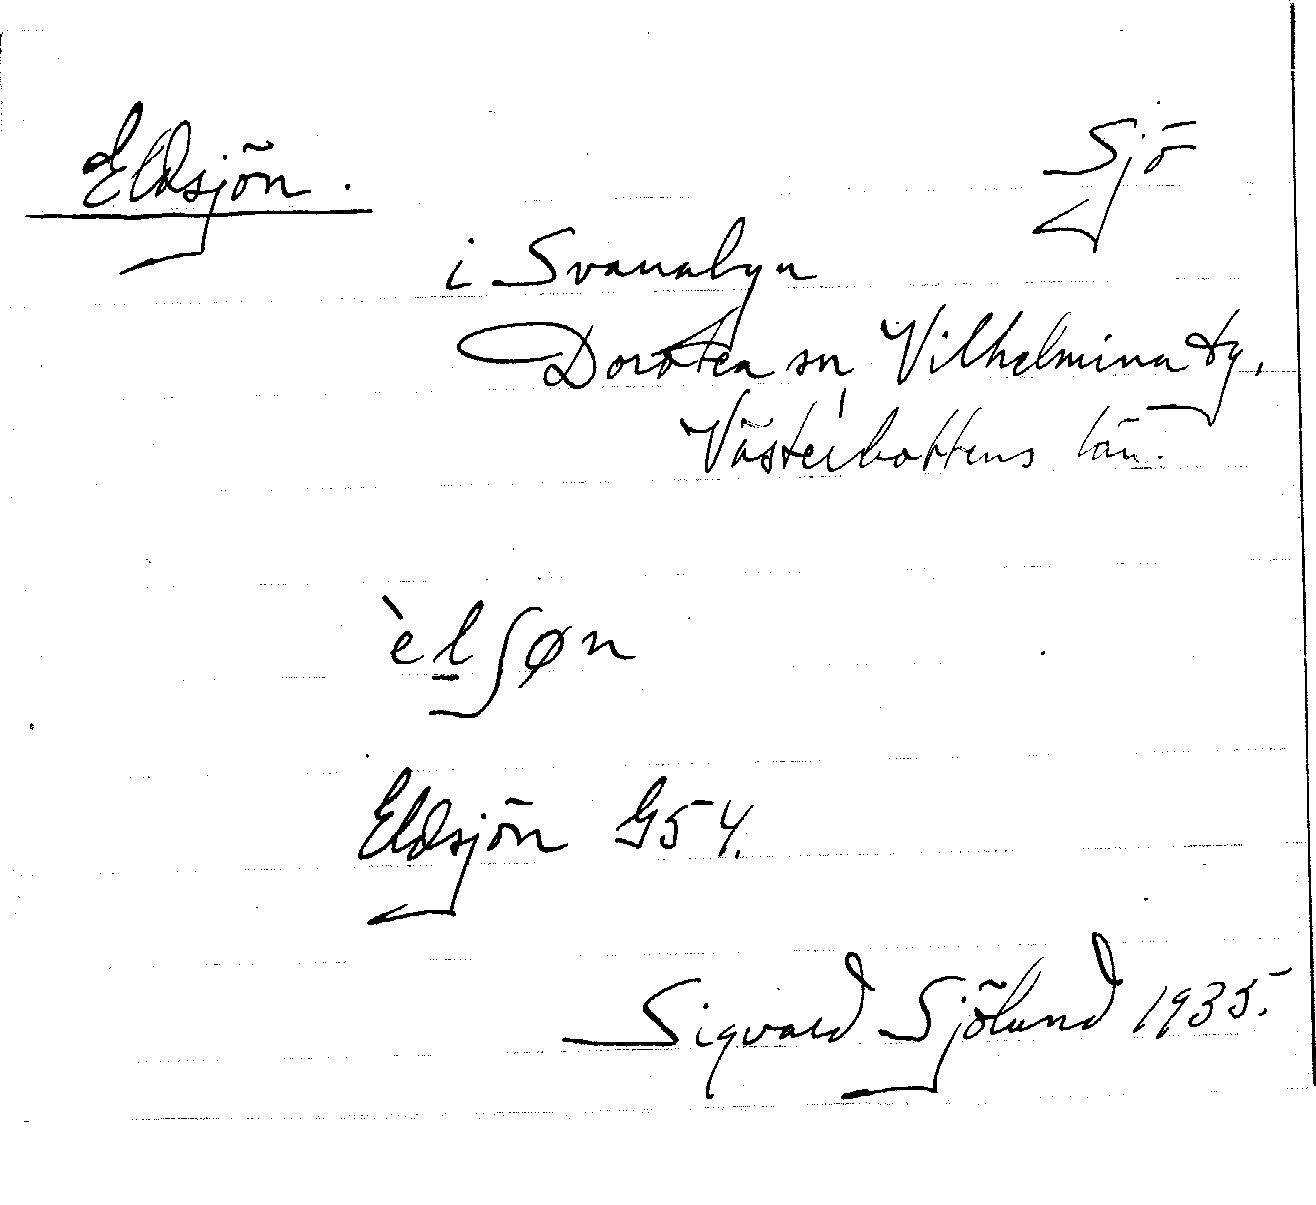 Eldsjön. Sjö
i Svanabyn
Dorotea sn, Vilhelmina tg,
Västerbottens län.
`el̲ʃøn
Eldsjön G54.
Sigvard Sjölund 1935.